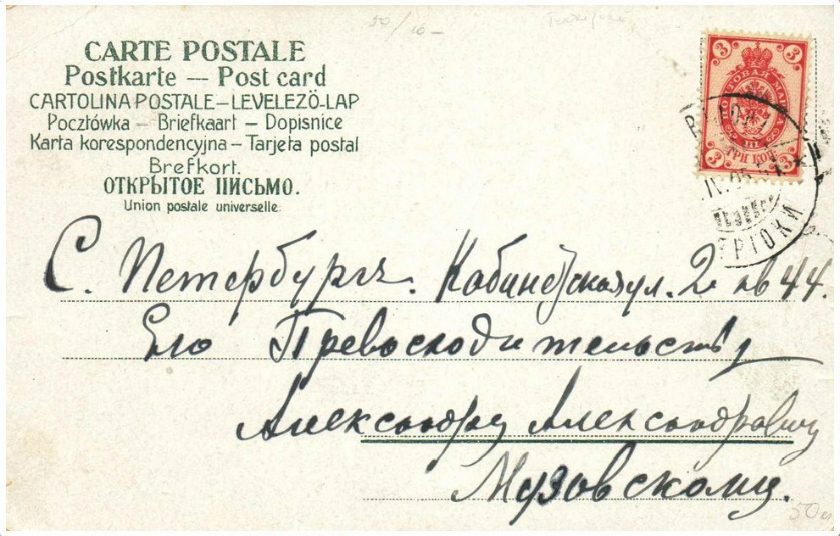 50/10-
CARTE POSTALE
Postkarte — Post card
CARTOLINA POSTALE – LEVELEZÖ-LAP
Pocztówka – Briefkaart – Dopisnice
Karta korespondencyjna – Tarjeta postal
Brefkort.
ОТКРЫТОЕ ПИСЬМО.
Union postale universelle.
3 3
ПОЧТОВАЯ МАРКА
3 ТРИ КОП. 3
С. Петербургъ. Кабинетская ул. 2 кв 44.
Его Превосходительству
Александру Александровичу
Музовскому.
50